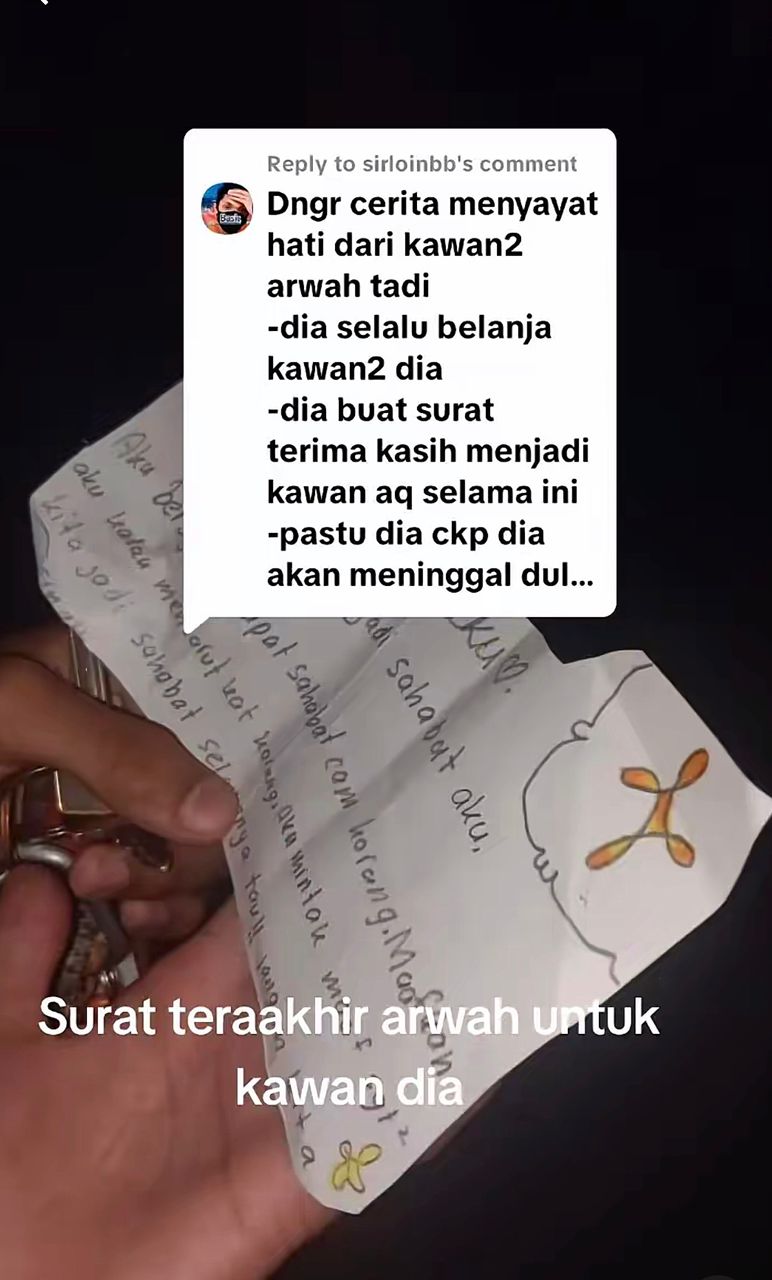 Reply to sirloinbb's comment
Dngr cerita menyayat
hati dari kawan2
arwah tadi
-dia selalu belanja
kawan2 dia
-dia buat surat
terima kasih menjadi
kawan aq selama ini
-pastu dia ckp dia
akan meninggal dul...
jadi sahabat aku,
pat sahabat cam korang. Maafkan
Aku
aku kalau korang, aku mintak
kita jadi sahabat
Surat teraakhir arwah untuk
kawan dia